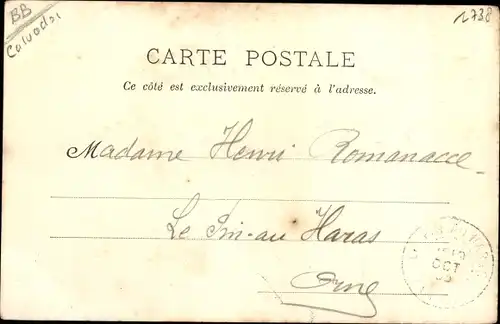 BB
Calvados
1738
CARTE POSTALE
Ce côté est exclusivement réservé à l'adresse.
Madame Henri Romanacce
Le Pin-au Haras
Orne
OCT